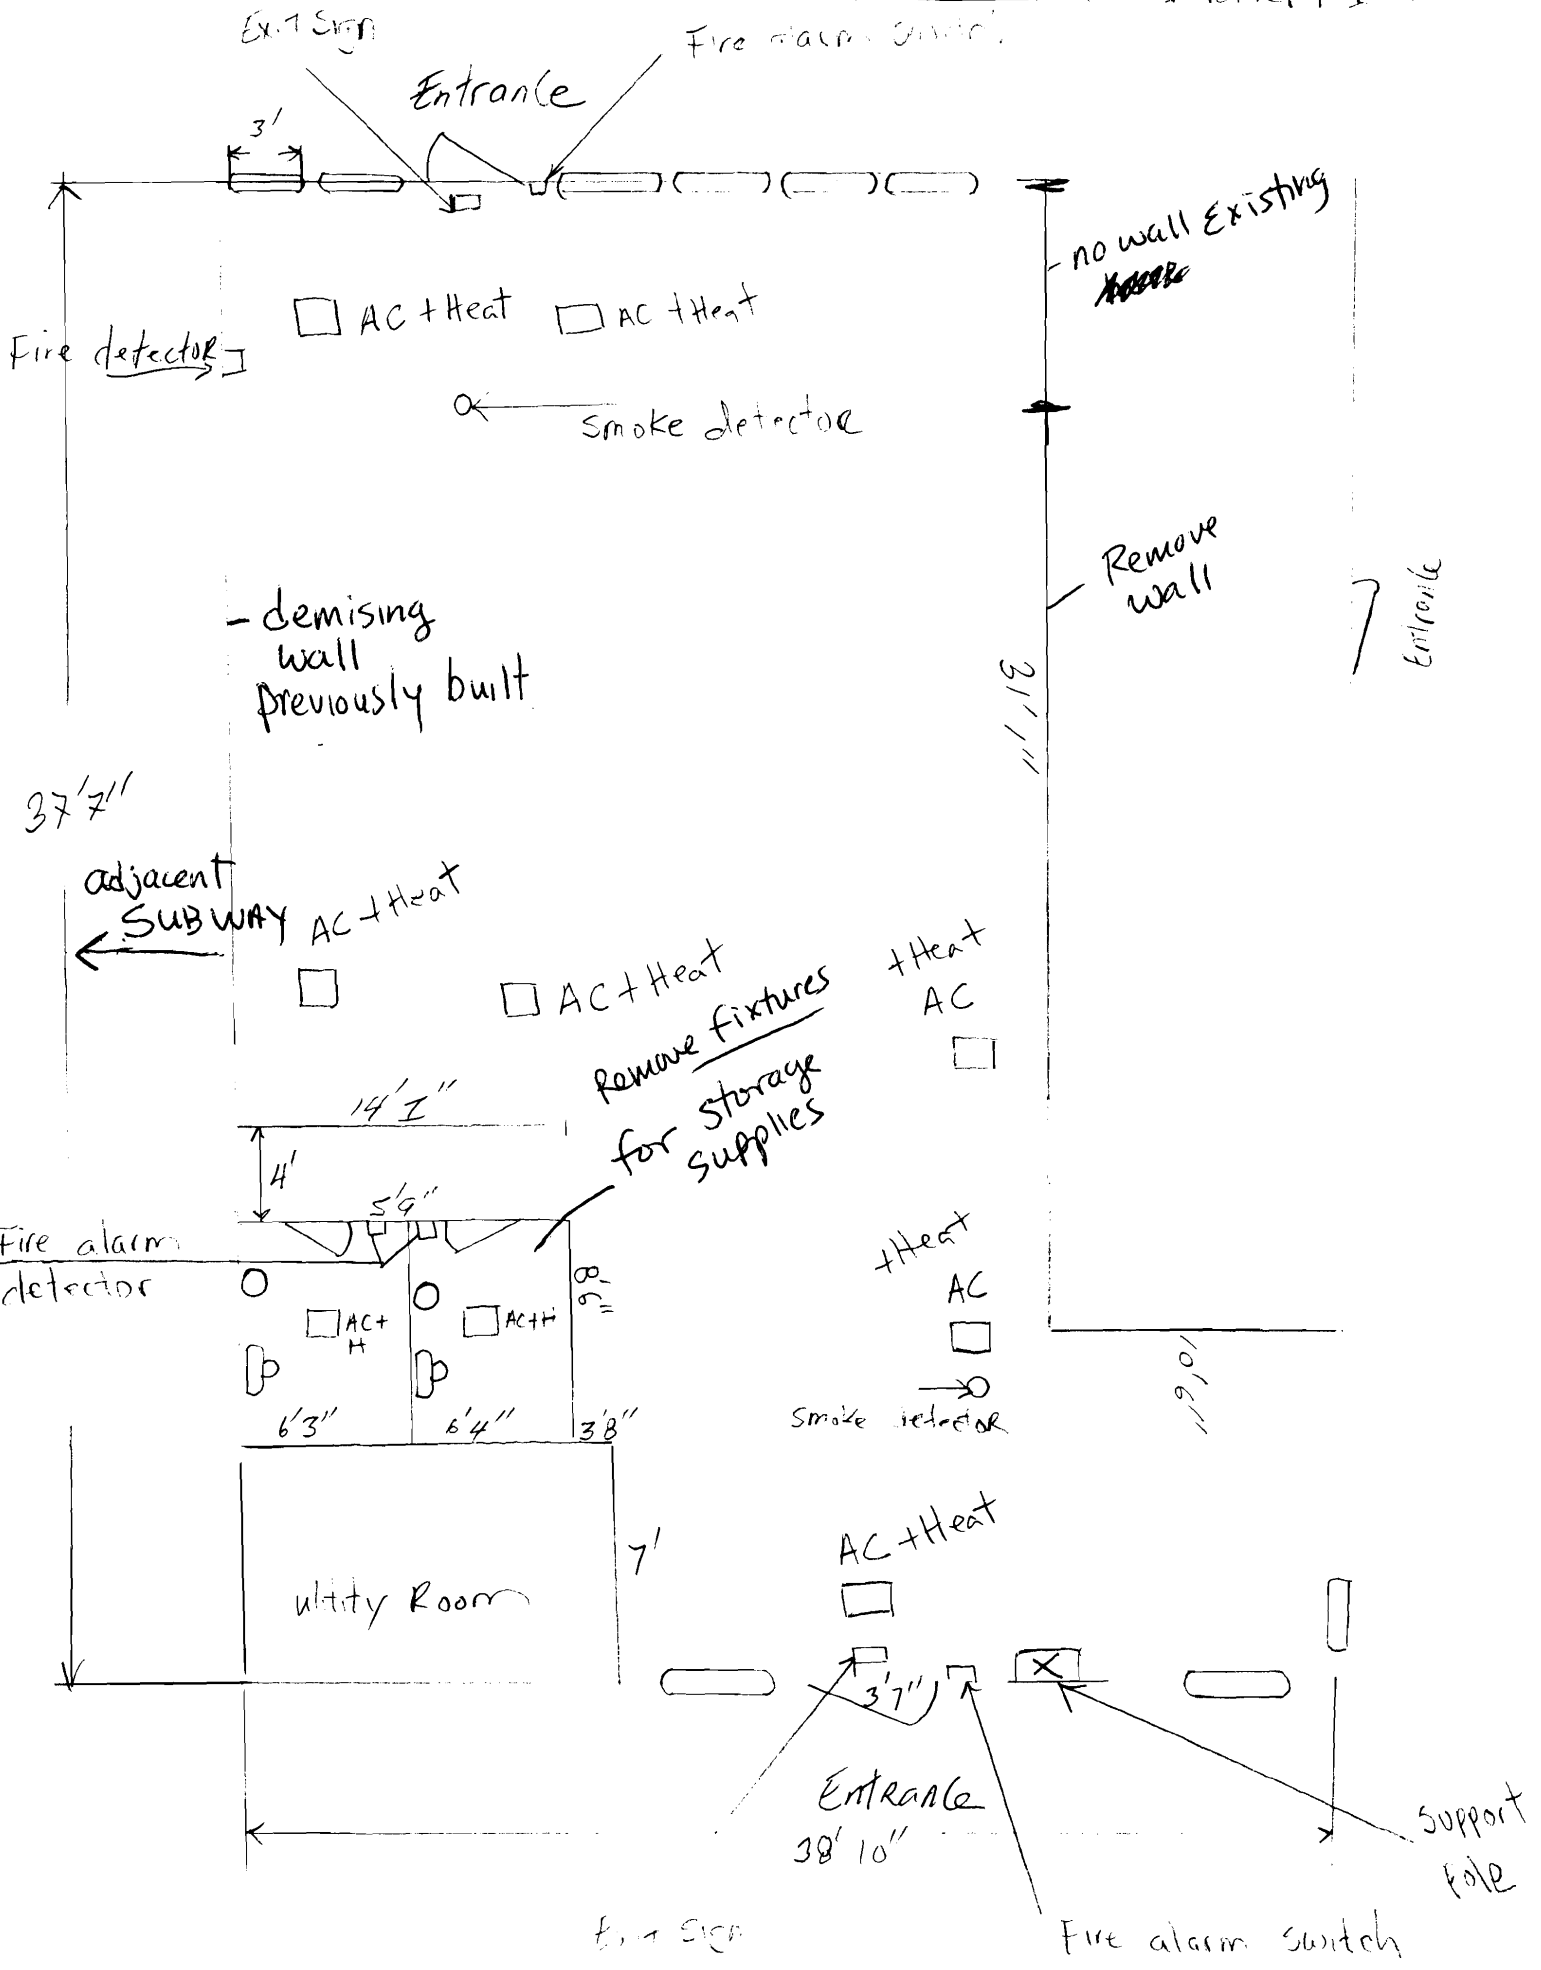 Exit Sign
Fire alarm Switch
Entrance
3'
no wall Existing
AC + Heat
AC + Heat
Fire detectoR
Smoke detectoR
Remove
wall
Entrance
demising
wall
previously built
31'1"
37'7"
adjacent
SUBWAY
AC + Heat
AC + Heat
+Heat
AC
Remove fixtures
for storage
supplies
14' I"
4'
5'9"
Fire alarm
detector
8'6"
AC+
H
AC+H
+Heat
AC
10'6"
Smoke detectoR
6'3"
6'4"
3'8"
AC + Heat
7'
ultity Room
3'7"
Entrance
38' 10"
Support
Pole
Exit Sign
Fire alarm Switch